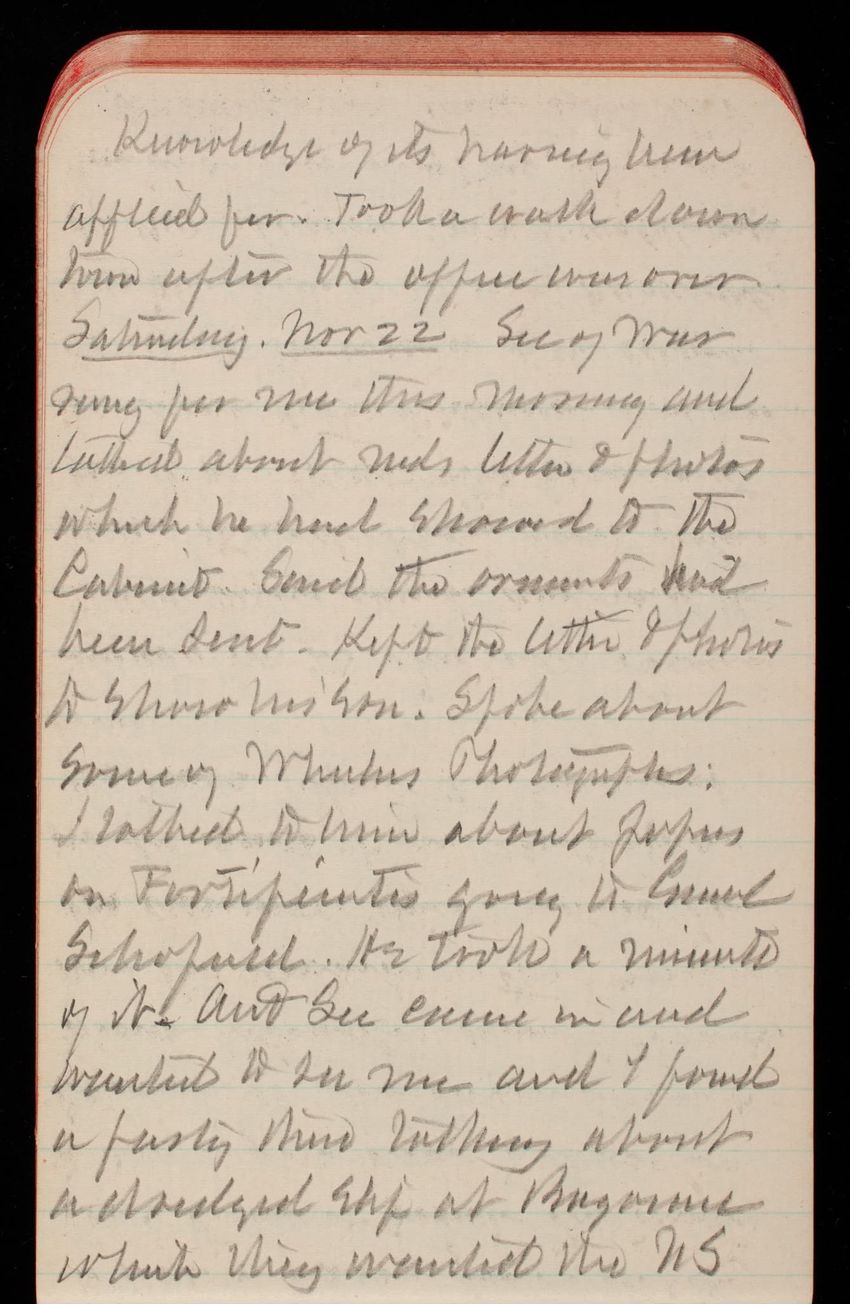 Knowledge of its having been
applied for. Took a walk down
town after the office was over
Saturday. Nov 22 Sec of War
rung for me this morning and
talked about neds letter & photos
which he had showed to the
Cabinet. Said the had
been sent. Kept the letter & photos
to show his son. Spoke about
some of Photographs:
I talked to him about papers
on Fortificatis going to Genel
Schofield. He took a minute
of it. Asst Sec came in and
wanted to see me and I found
a party there talking about
a dredged slip at
which they wanted the US